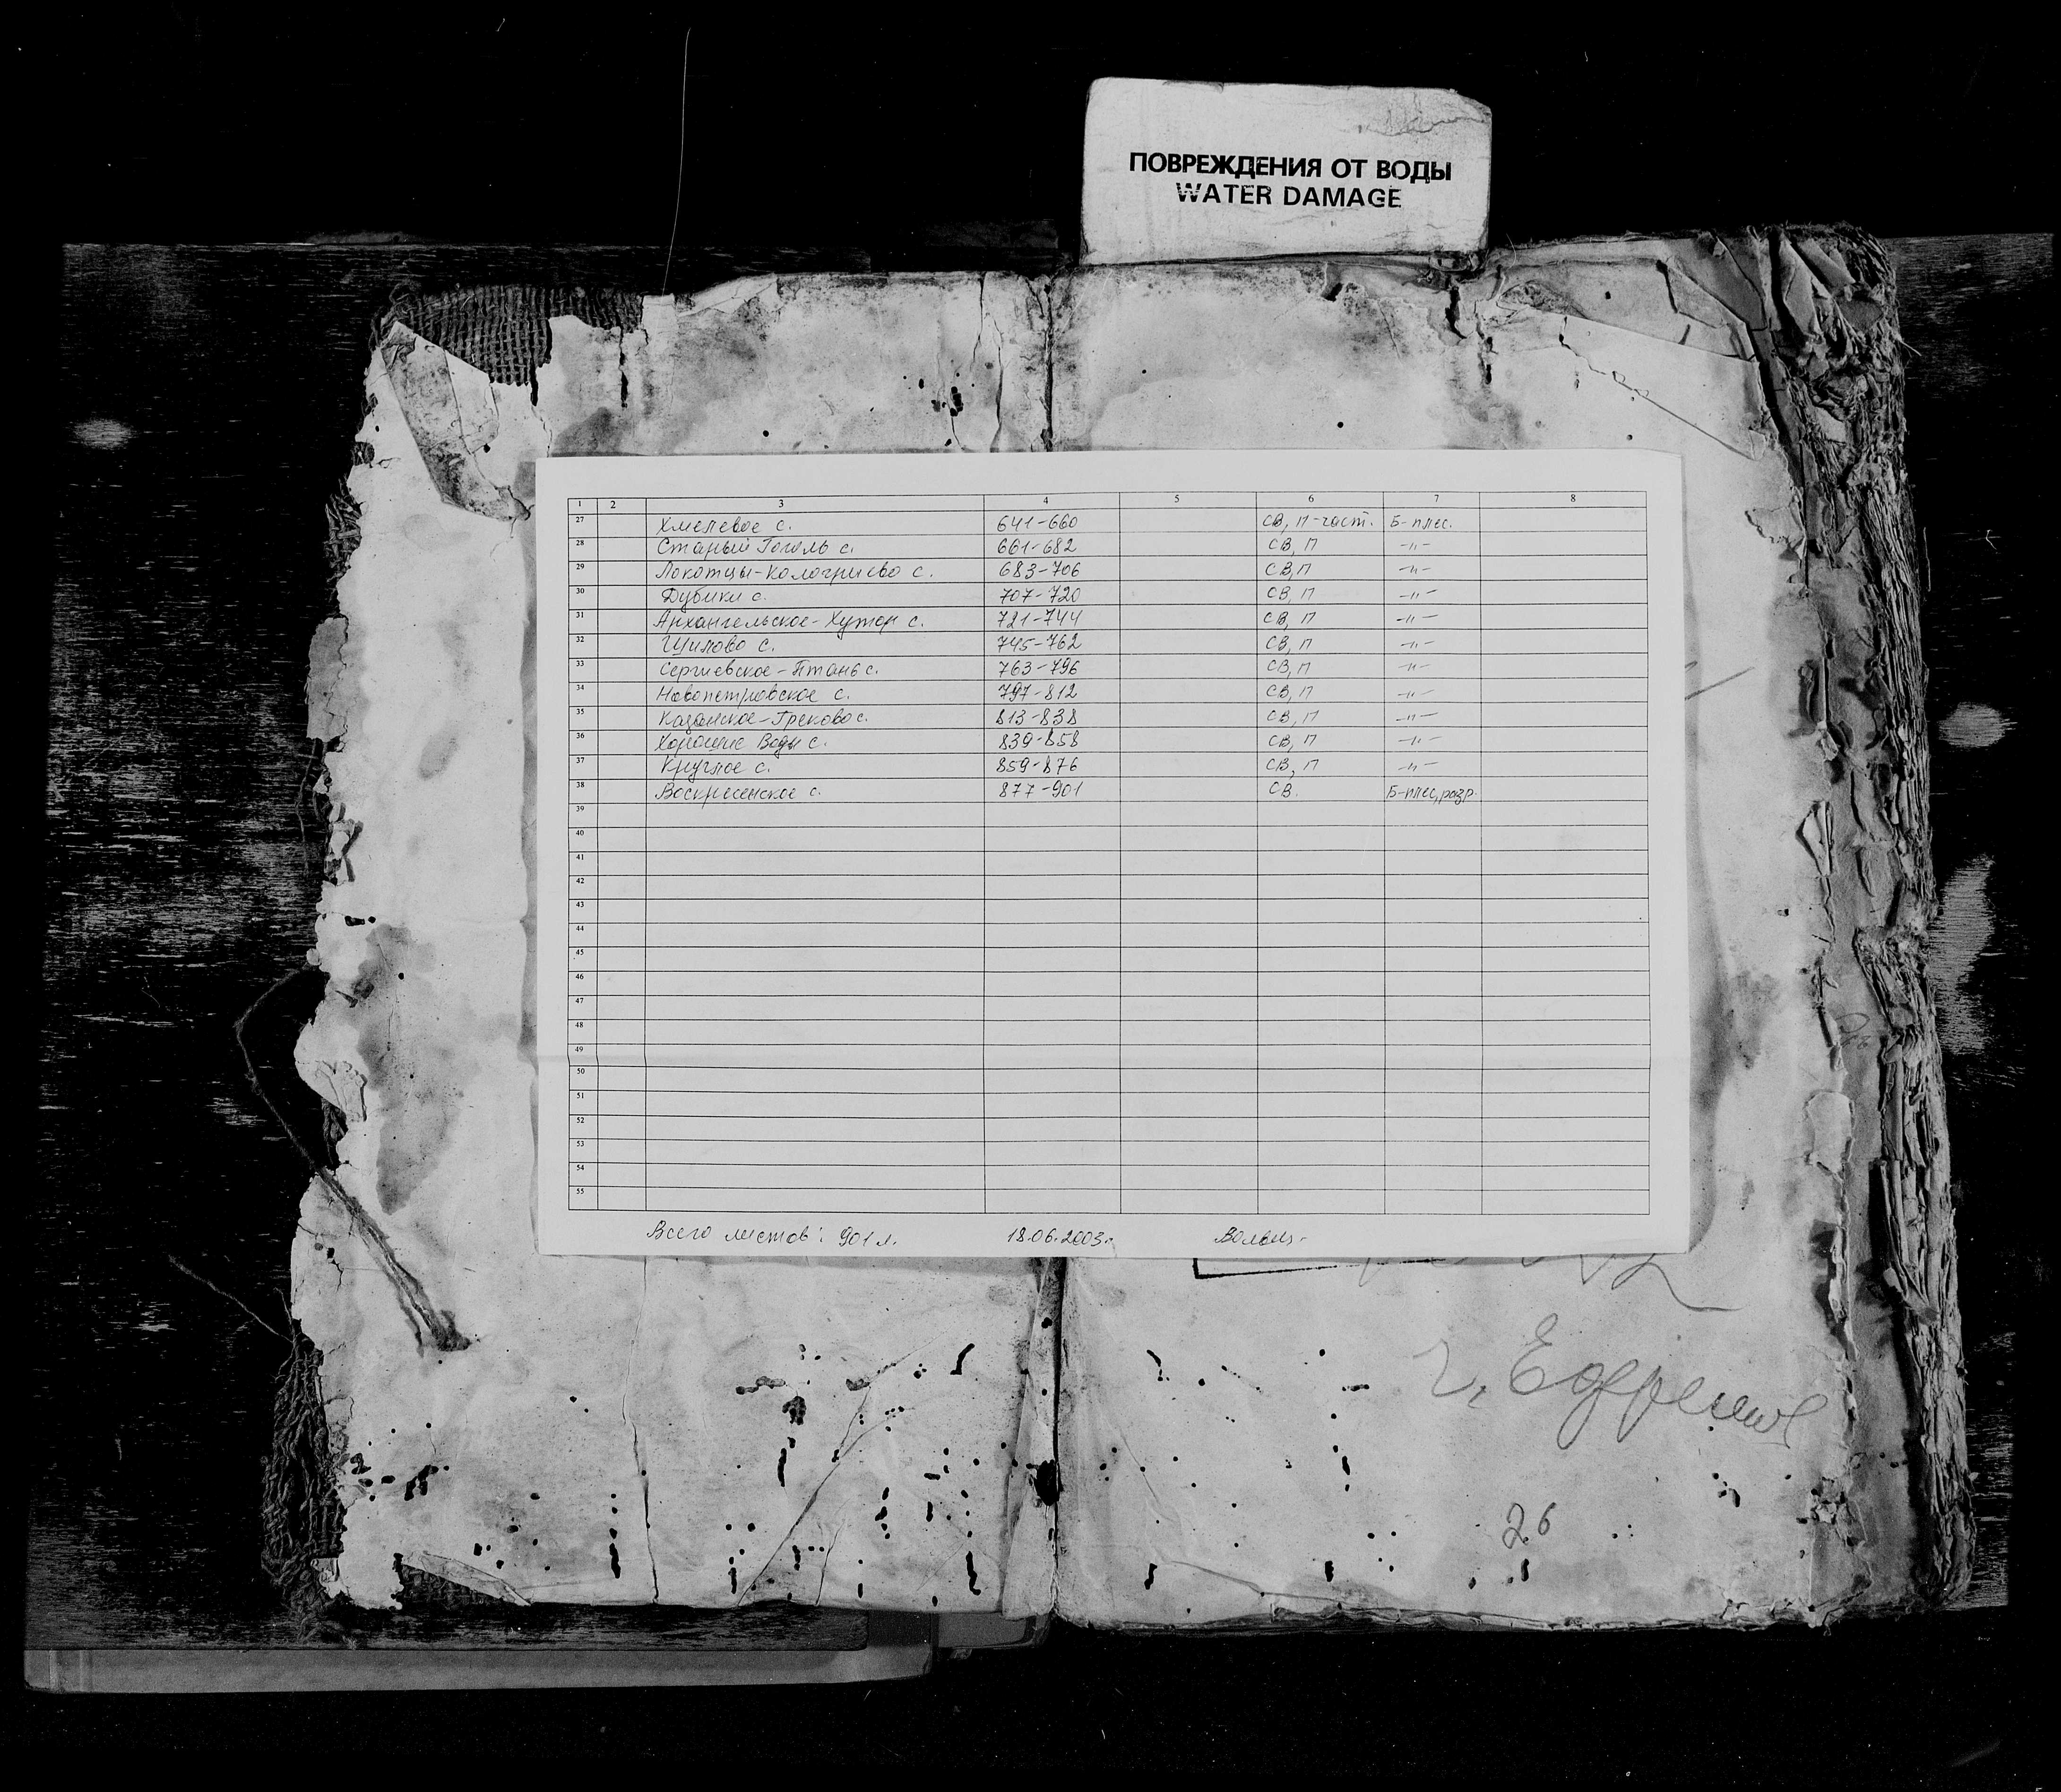 ПОВРЕЖДЕНИЯ ОТ ВОДЫ
WATER DAMAGE
1 2 3 4 5 6 7 8
27 Хмелевое с. 641-660 СВ, П-част. Б-плес.
28 Старый Гоголь с. 661-682 СВ, П -"-
29 Локотцы-Кологриево с. 683-706 СВ, П -"-
30 Дубики с. 707-720 СВ, П -"-
31 Архангельское-Хутор с. 721-744 СВ, П -"-
32 Шилово с. 745-762 СВ, П -"-
33 Сергиевское-Птань с. 763-796 СВ, П -"-
34 Новопетровское с. 797-812 СВ, П -"-
35 Казанское-Греково с. 813-838 СВ, П -"-
36 Хорошие Воды с. 839-858 СВ, П -"-
37 Круглое с. 859-876 СВ, П -"-
38 Воскресенское с. 877-901 СВ. Б-плес, разр.
39
40
41
42
43
44
45
46
47
48
49
50
51
52
53
54
55
Всего листов: 901 л. 18.06.2003г.
г. Ефремов
26